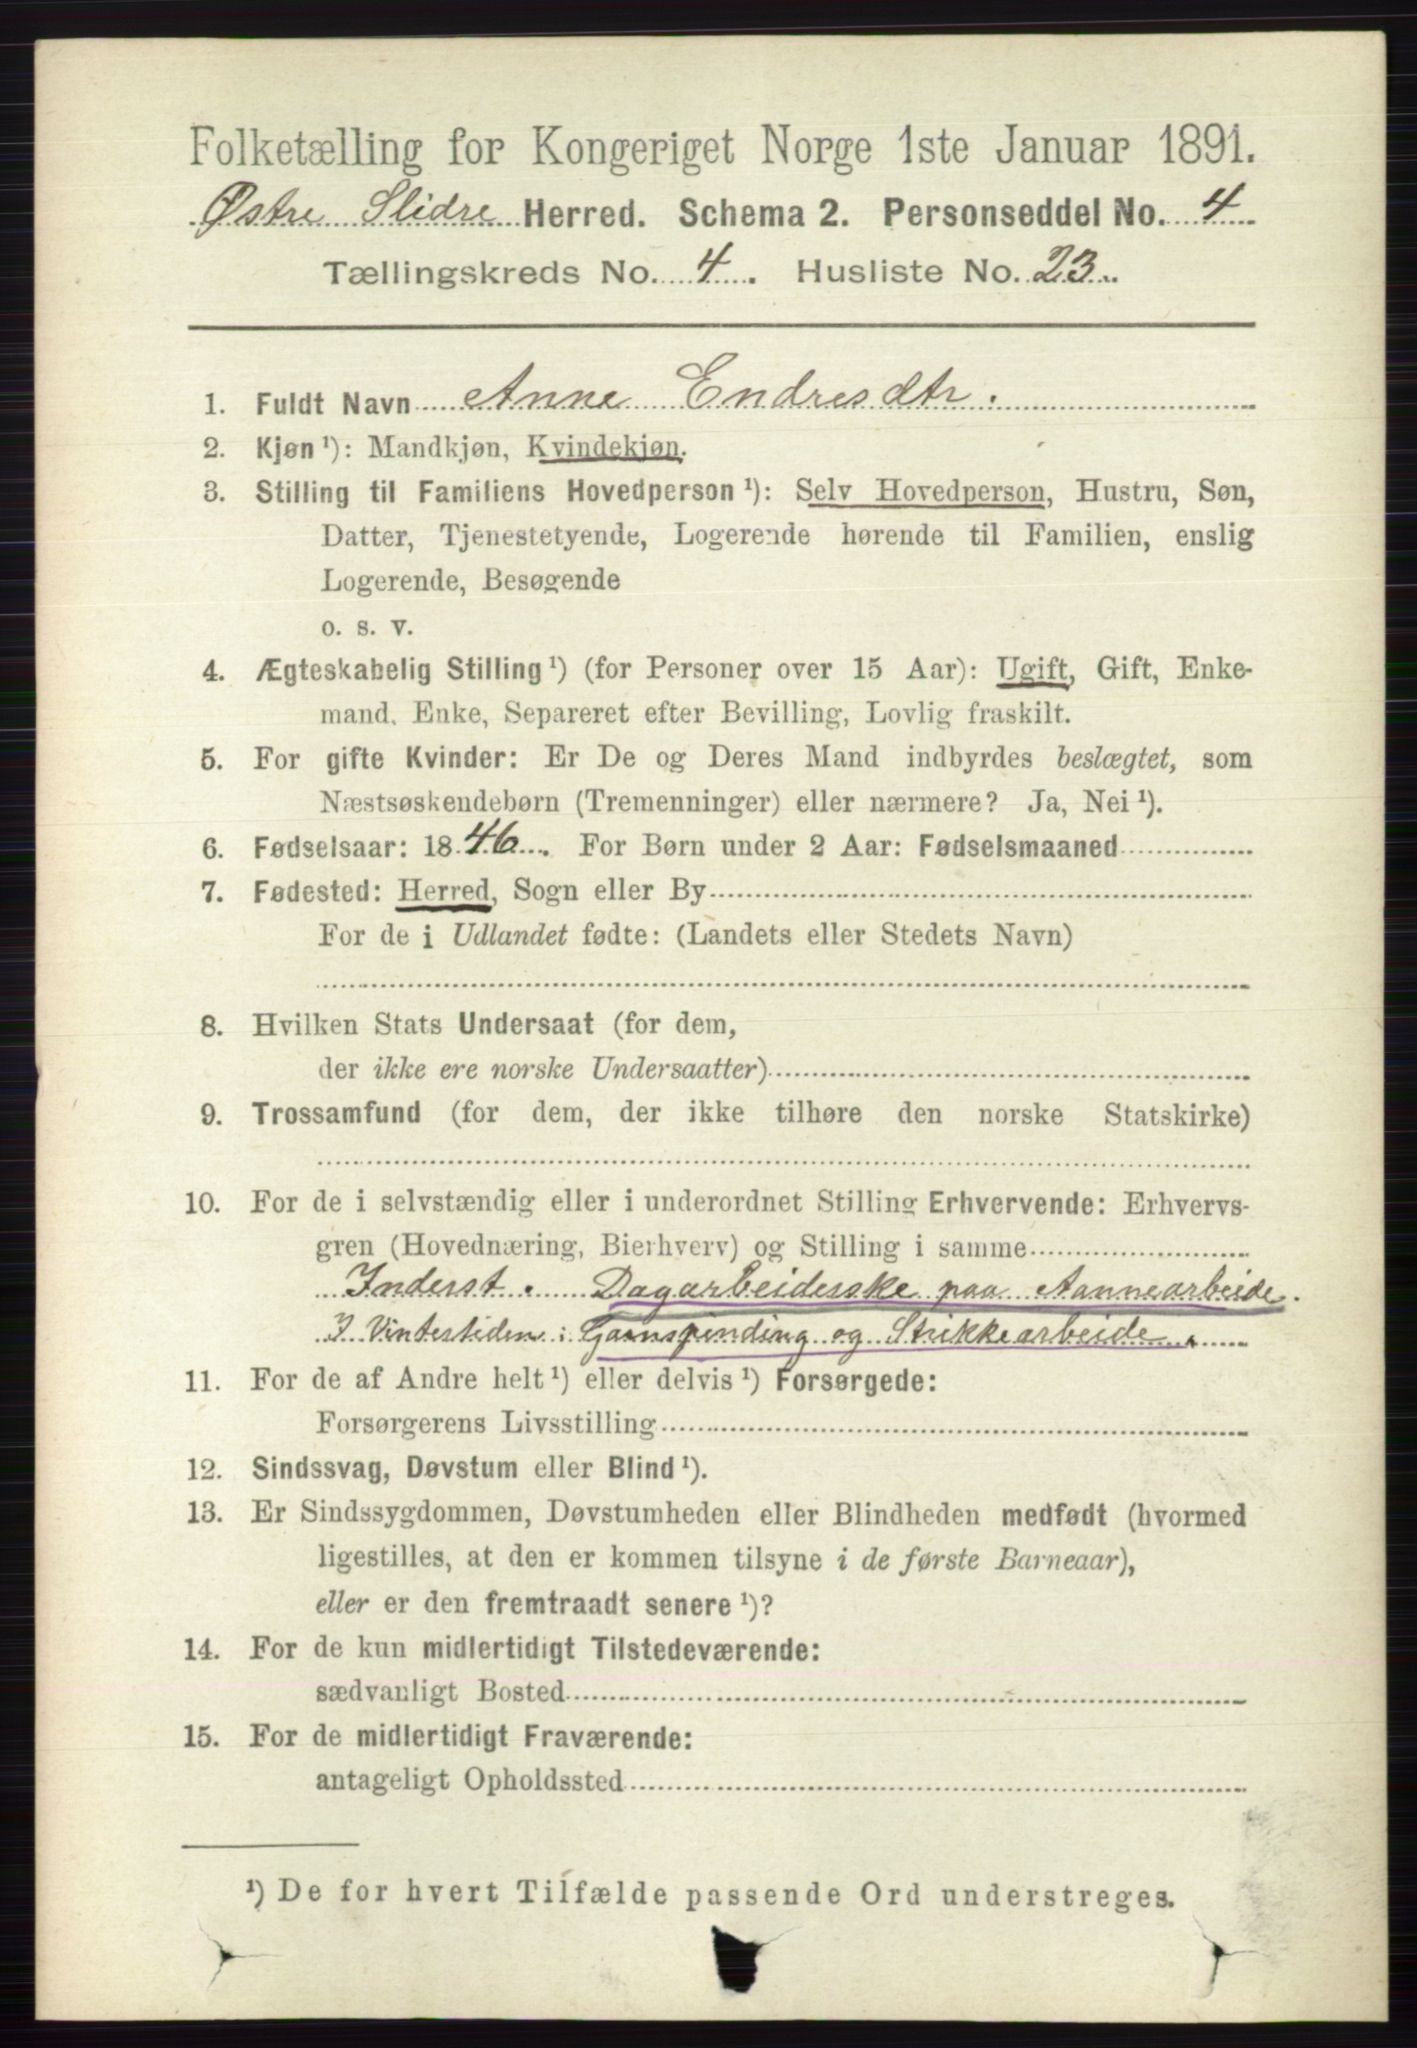 Folketælling for Kongeriget Norge 1ste Januar 1891.
Østre Slidre Herred. Schema 2. Personseddel No. 4
Tællingskreds No. 4. Husliste No. 23.
1. Fuldt Navn Anne Endresdtr.
2. Kjøn ¹): Mandkjøn, Kvindekjøn.
3. Stilling til Familiens Hovedperson ¹): Selv Hovedperson, Hustru, Søn,
Datter, Tjenestetyende, Logerende hørende til Familien, enslig
Logerende, Besøgende
o. s. v.
4. Ægteskabelig Stilling ¹) (for Personer over 15 Aar): Ugift, Gift, Enke-
mand, Enke, Separeret efter Bevilling, Lovlig fraskilt.
5. For gifte Kvinder: Er De og Deres Mand indbyrdes beslægtet, som
Næstsøskendebørn (Tremenninger) eller nærmere? Ja, Nei ¹).
6. Fødselsaar: 1846. For Børn under 2 Aar: Fødselsmaaned
7. Fødested: Herred, Sogn eller By
For de i Udlandet fødte: (Landets eller Stedets Navn)
8. Hvilken Stats Undersaat (for dem,
der ikke ere norske Undersaatter)
9. Trossamfund (for dem, der ikke tilhøre den norske Statskirke)
10. For de i selvstændig eller i underordnet Stilling Erhvervende: Erhvervs-
gren (Hovednæring, Bierhverv) og Stilling i samme
Inderst. Dagarbeiderske paa Aannearbeide.
I Vintertiden: Garnspinding og Strikkearbeide.
11. For de af Andre helt ¹) eller delvis ¹) Forsørgede:
Forsørgerens Livsstilling
12. Sindssvag, Døvstum eller Blind ¹).
13. Er Sindssygdommen, Døvstumheden eller Blindheden medfødt (hvormed
ligestilles, at den er kommen tilsyne i de første Barneaar),
eller er den fremtraadt senere ¹)?
14. For de kun midlertidigt Tilstedeværende:
sædvanligt Bosted
15. For de midlertidigt Fraværende:
antageligt Opholdssted
¹) De for hvert Tilfælde passende Ord understreges.